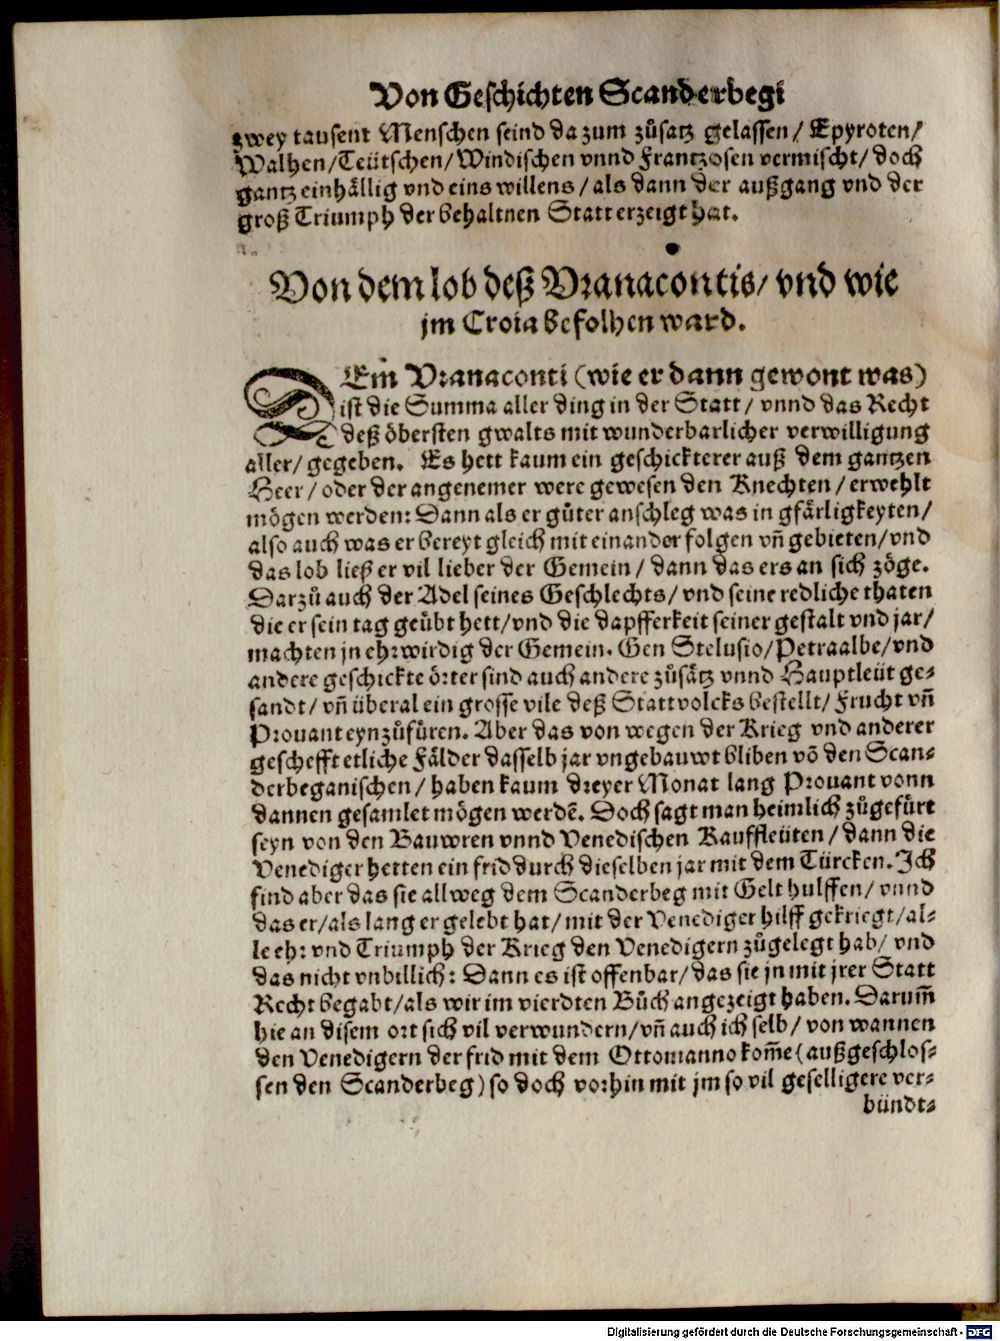 Von Geschichten Scanderbegi
zwey tausent Menschen seind da zum zůsatz gelassen / Epyroten /
Walhen / Teütschen / Windischen vnnd Frantzosen vermischt / doch
gantz einhällig vnd eins willens / als dann der außgang vnd der
groß Triumph der behaltnen Statt erzeigt hat.
Von dem lob deß Vranacontis / vnd wie
jm Croia befolhen ward.
DEm Vranaconti (wie er dann gewont was)
ist die Summa aller ding in der Statt / vnnd das Recht
deß öbersten gwalts mit wunderbarlicher verwilligung
aller / gegeben. Es hett kaum ein geschickterer auß dem gantzen
Heer / oder der angenemer were gewesen den Knechten / erwehlt
mögen werden: Dann als er gůter anschleg was in gfärligkeyten /
also auch was er bereyt gleich mit einander folgen vñ gebieten / vnd
das lob ließ er vil lieber der Gemein / dann das ers an sich zöge.
Darzů auch der Adel seines Geschlechts / vnd seine redliche thaten
die er sein tag geübt hett / vnd die dapfferkeit seiner gestalt vnd jar /
machten jn ehrwirdig der Gemein. Gen Stelusio / Petraalbe / vnd
andere geschickte örter sind auch andere zůsätz vnnd Hauptleüt ge⸗
sandt / vñ überal ein grosse vile deß Stattvolcks bestellt / Frucht vñ
Prouant eynzůfüren. Aber das von wegen der Krieg vnd anderer
geschefft etliche Fälder dasselb jar vngebauwt bliben võ den Scan⸗
derbeganischen / haben kaum dreyer Monat lang Prouant vonn
dannen gesamlet mögen werdẽ. Doch sagt man heimlich zůgefürt
seyn von den Bauwren vnnd Venedischen Kauffleüten / dann die
Venediger hetten ein frid durch dieselben jar mit dem Türcken. Ich
find aber das sie allweg dem Scanderbeg mit Gelt hulffen / vnnd
das er / als lang er gelebt hat / mit der Venediger hilff gekriegt / al⸗
le ehr vnd Triumph der Krieg den Venedigern zůgelegt hab / vnd
das nicht vnbillich: Dann es ist offenbar / das sie jn mit jrer Statt
Recht begabt / als wir im vierdten Bůch angezeigt haben. Darum̃
hie an disem ort sich vil verwundern / vñ auch ich selb / von wannen
den Venedigern der frid mit dem Ottomanno kom̃e (außgeschlos⸗
sen den Scanderbeg) so doch vorhin mit jm so vil geselligere ver⸗
bündt⸗
Digitalisierung gefördert durch die Deutsche Forschungsgemeinschaft - DFG